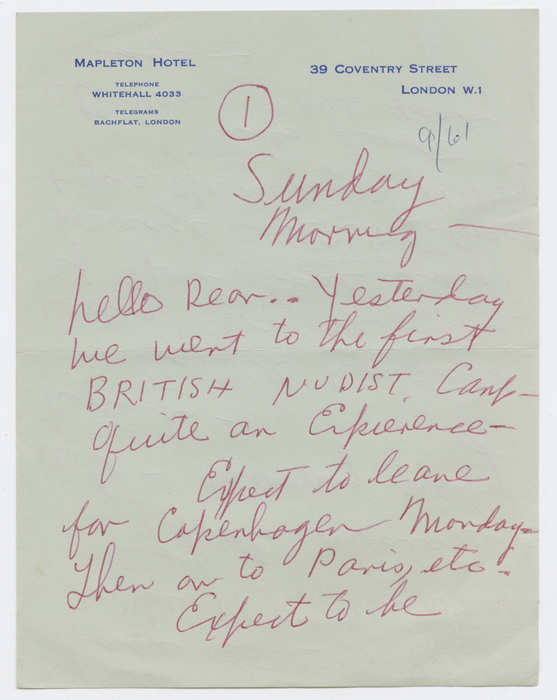 MAPLETON HOTEL
TELEPHONE
WHITEHALL 4033
TELEGRAMS
BACHFLAT, LONDON
39 COVENTRY STREET
LONDON W.1
1
9/61
Sunday
Morning —
hello Dear.. Yesterday
we went to the first
BRITISH NUDIST. Camp—
quite an Expierence—
Expect to leave
for Copenhagen Monday—
Then on to Paris, etc—
Expect to be